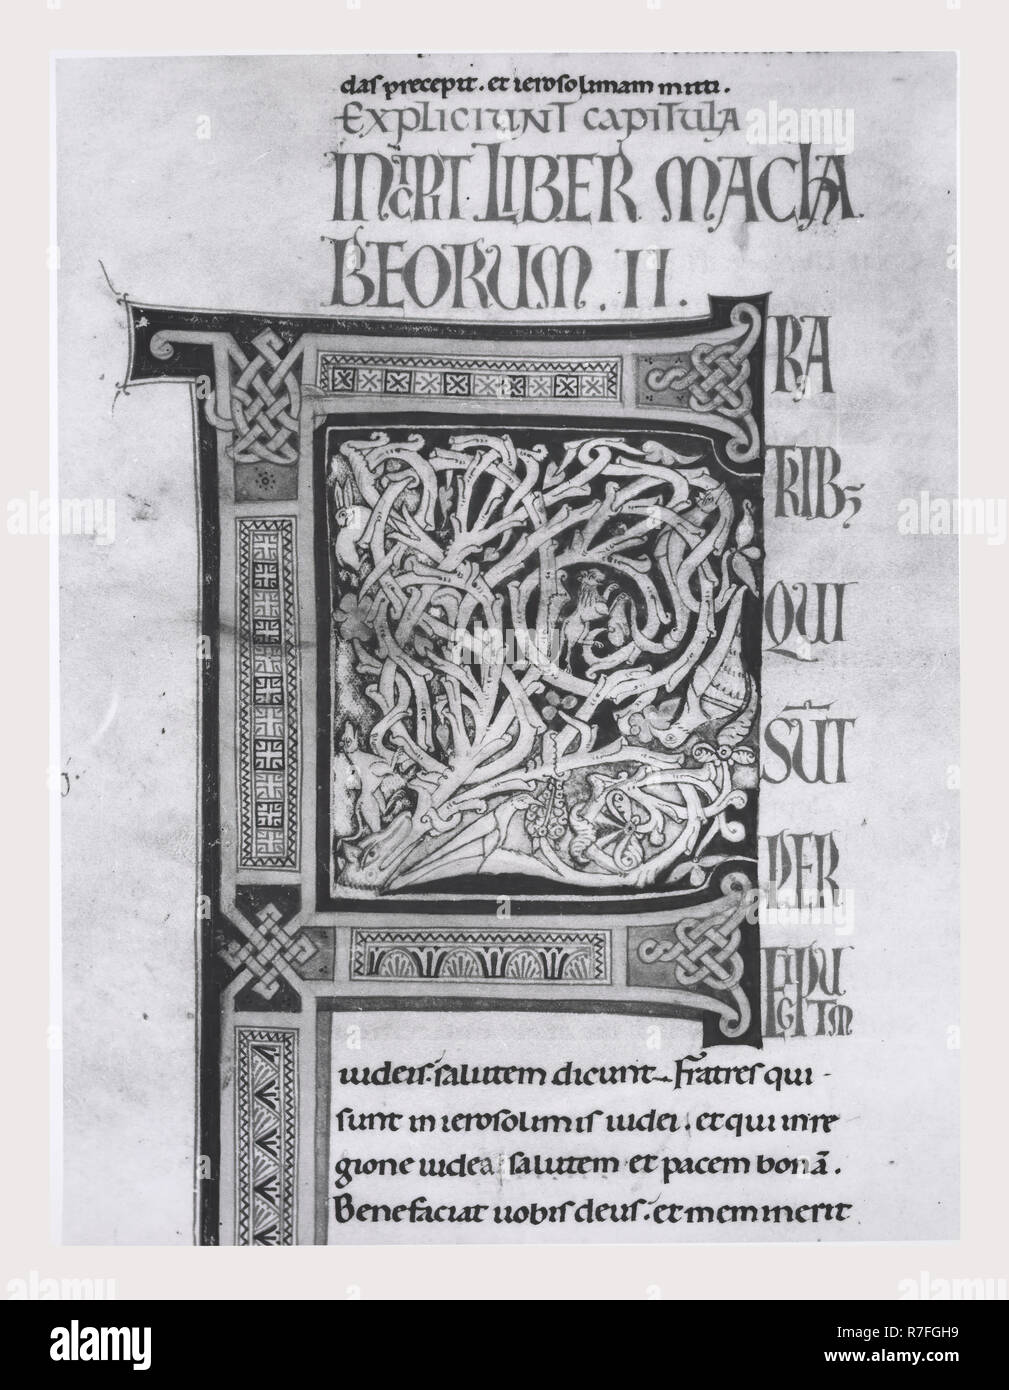 das precepit. et ierosolimam mitti.
Expliciunt capitula
INCPIT LIBER MACHA
BEORUM. II.
F RA
TRIB;
QUI
SŪT
PER
EGIPTŪ
iudeis. salutem dicunt. Fratres qui
sunt in ierosolimis iudei. et qui in re
gione iudea salutem et pacem bonā.
Benefaciat uobis deus. et meminerit
alamy
Image ID: R7FGH9
www.alamy.com